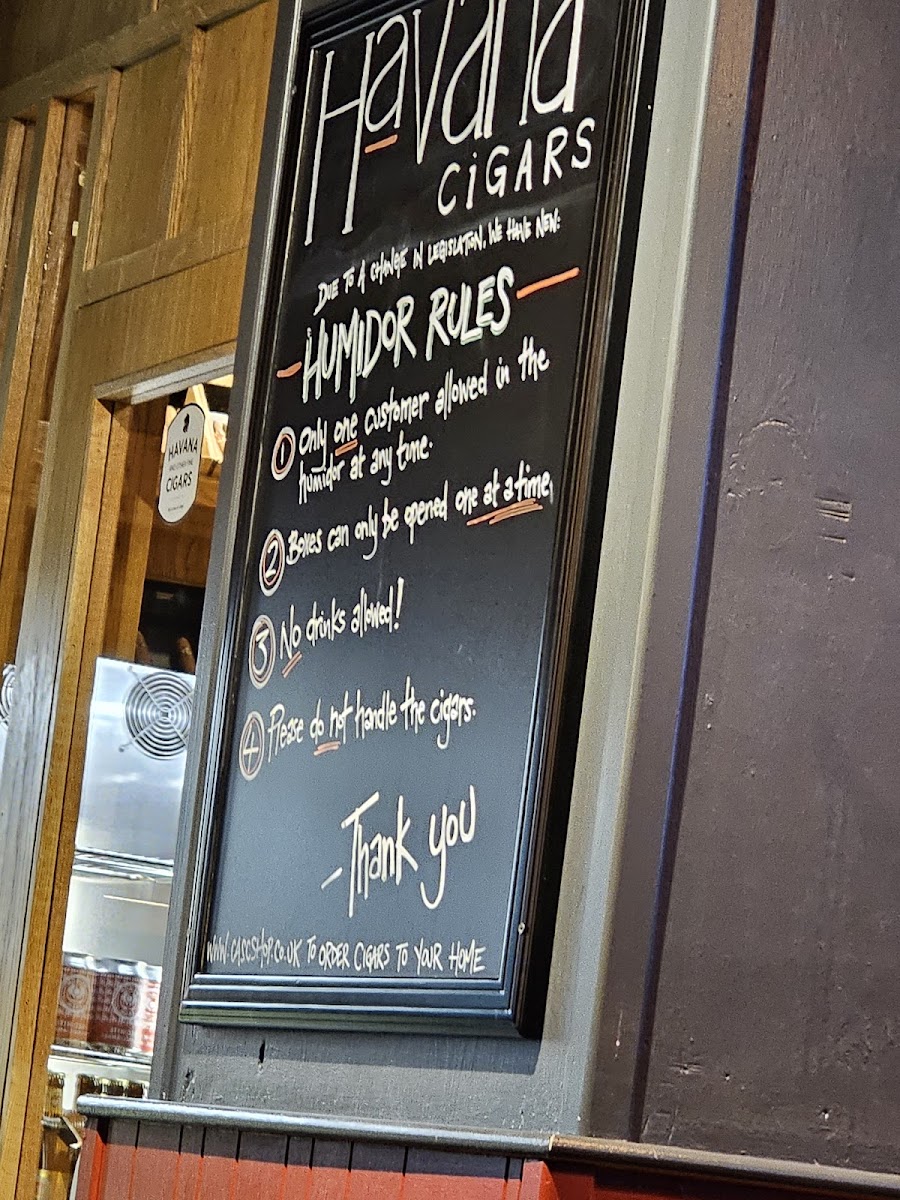 Havana
CiGARS
DUE TO A CHANGE IN LEGISLATION, WE HAVE NEW:
HUMIDOR RULES
1 Only one customer allowed in the
humidor at any time.
2 Boxes can only be opened one at a time.
3 No drinks allowed!
4 Please do not handle the cigars.
-Thank you
WWW.CASCSHOP.CO.UK TO ORDER CIGARS TO YOUR HOME
HAVANA
AND OTHER FINE
CIGARS